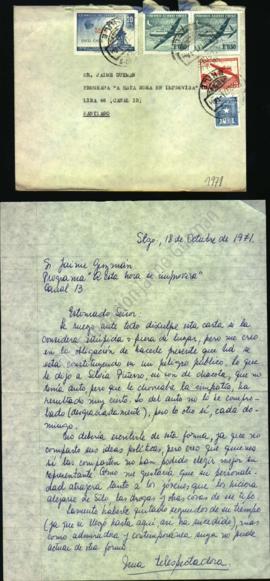 SR. JAIME GUZMAN
PROGRAMA "A ESTA HORA SE IMPROVISA"
LIRA 46 (CANAL 13)
SANTIAGO
1971
Stgo, 18 de Octubre de 1971.
Sr. Jaime Guzmán
Programa "A esta hora se improvisa"
Canal 13
Estimado Señor:
Le ruego ante todo disculpe esta carta si la
considera estúpida y fuera de lugar, pero me creo
en la obligación de hacerle presente que Ud. se
está constituyendo en un peligro público; lo que
le dijo a Silvia Piñeiro, en son de chacota, que no
tenía auto pero que le chorreaba la simpatía, ha
resultado muy cierto. Lo del auto no lo he compro-
bado (desgraciadamente), pero lo otro sí, cada do-
mingo.
No debería escribirle de esta forma, ya que no
comparto sus ideas políticas, pero creo que quienes
sí las comparten no han podido elegir mejor su
representante. Como me gustaría que su personali-
dad atrajera tanto a los jóvenes, que los hiciera
alejarse de las drogas y mas cosas de ese tipo.
Lamento haberle quitado segundos de su tiempo
(ya que si llegó hasta aquí así ha sucedido), mas
como admiradora y contemporánea suya no puedo
actuar de otra forma.
Una telespectadora